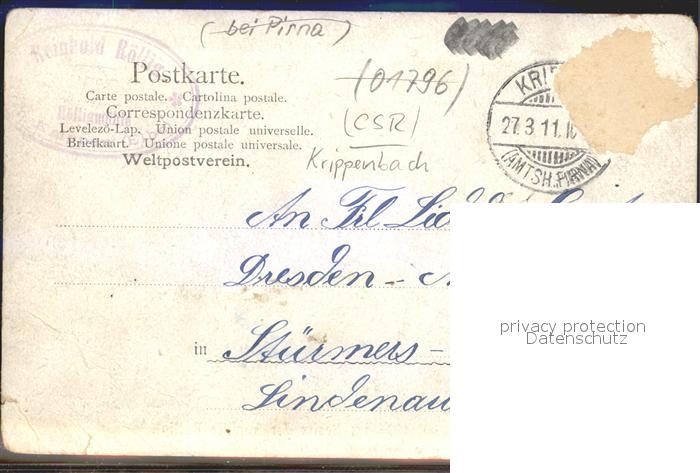 (bei Pirna)
Reinhold Röllig
Postkarte.
(01796)
Carte postale. Cartolina postale.
Correspondenzkarte.
(CSR)
Levelező-Lap. Union postale universelle.
Briefkaart. Unione postale universale.
Weltpostverein.
Krippenbach
KRI
27.3.11.10
(AMTSH. PIRNA)
An Frl
Dresden -
in Stürmers-
Lindenau
privacy protection
Datenschutz